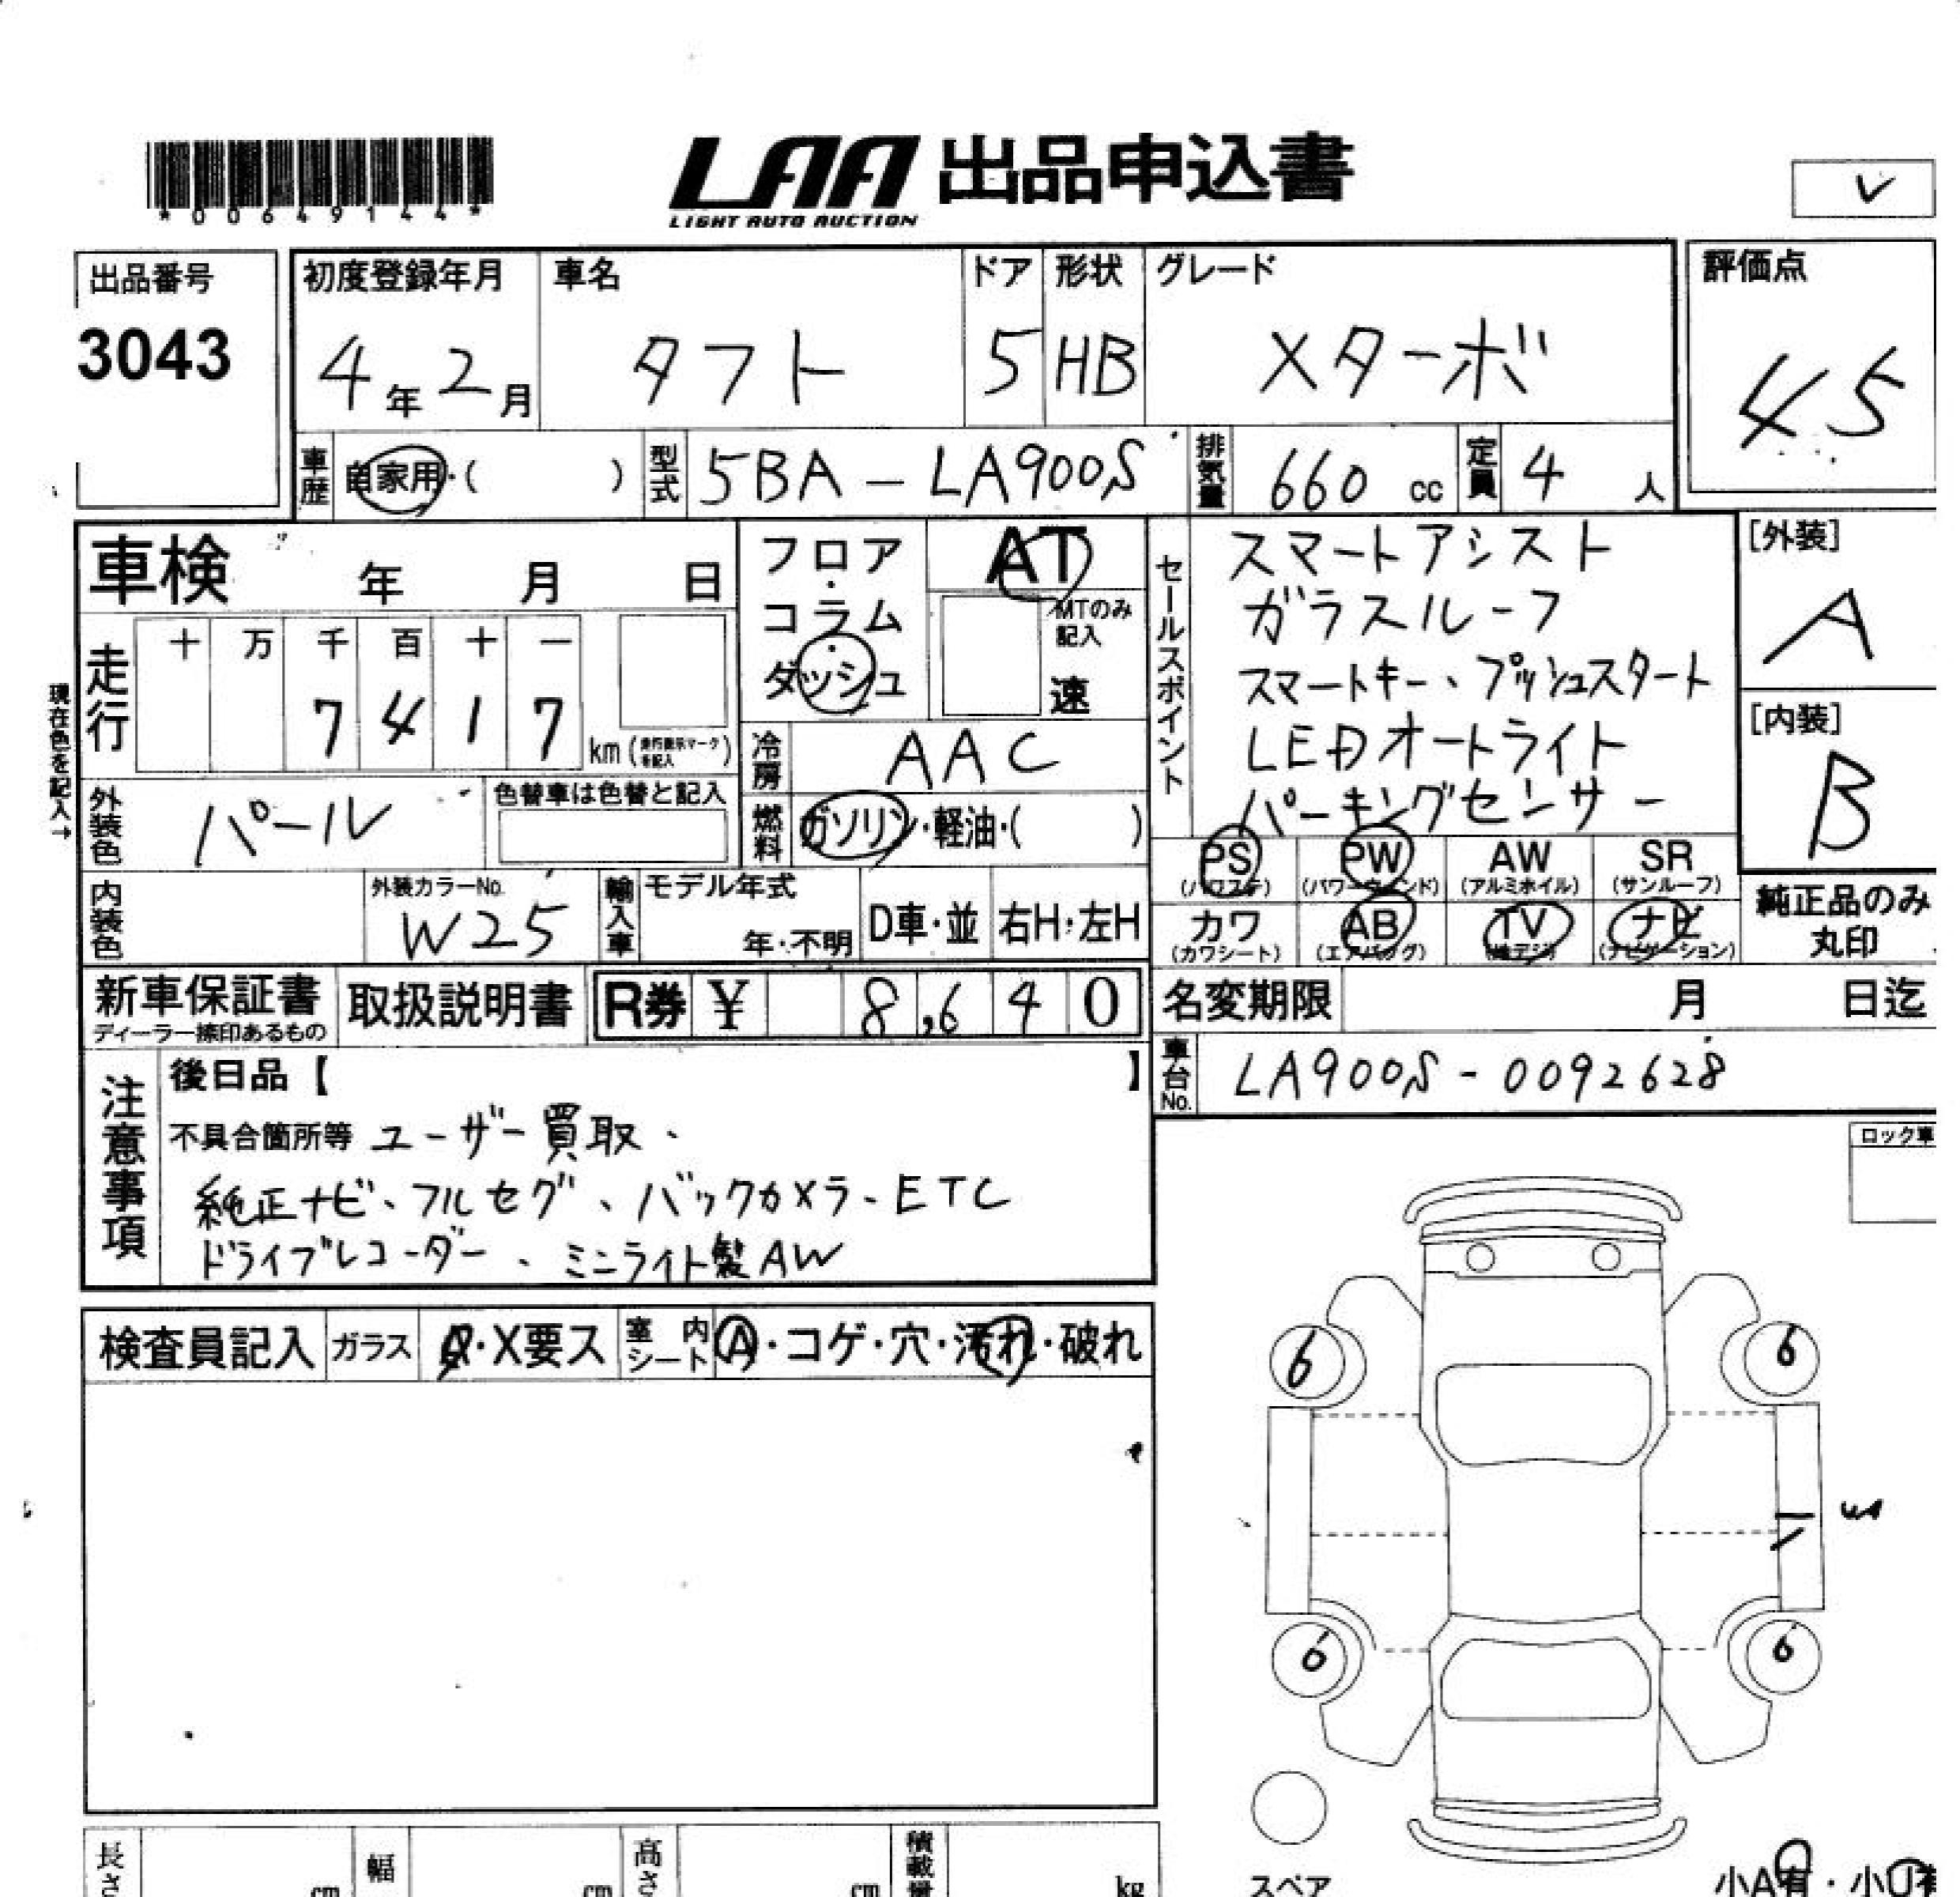 *00649144*
LAA 出品申込書
LIGHT AUTO AUCTION
出品番号
3043
初度登録年月
4年2月
車名
タフト
ドア
5
形状
HB
グレード
Xターボ
評価点
4.5
車歴
自家用・( )
型式
5BA-LA900S
排気量
660 cc
定員
4 人
車検 年 月 日
フロア・コラム・ダッシュ
AT
MTのみ記入
速
セールスポイント
スマートアシスト
ガラスルーフ
スマートキー、プッシュスタート
LEDオートライト
パーキングセンサー
[外装]
A
[内装]
B
現在色を記入→
走行
十 万 千 百 十 一
7 4 1 7
km (走行表示マークを記入)
冷房
AAC
燃料
ガソリン・軽油・( )
外装色
パール
色替車は色替と記入
内装色
外装カラーNo.
W25
輸入車
モデル年式
年・不明
D車・並
右H・左H
PS (パワステ)
PW (パワーウィンド)
AW (アルミホイル)
SR (サンルーフ)
カワ (カワシート)
AB (エアバッグ)
TV (地デジ)
ナビ (ナビゲーション)
純正品のみ
丸印
新車保証書
ディーラー捺印あるもの
取扱説明書
R券 ¥ 8,640
名変期限 月 日迄
車台No.
LA900S-0092628
注意事項
後日品【 】
不具合箇所等 ユーザー買取、
純正ナビ、フルセグ、バックカメラ、ETC
ドライブレコーダー、ミニライト製AW
ロック車
検査員記入
ガラス
・X要ス
室内シート
A・コゲ・穴・汚れ・破れ
6
6
6
6
スペア
長さ cm
幅 cm
高さ cm
積載量 kg
小A有・小U有